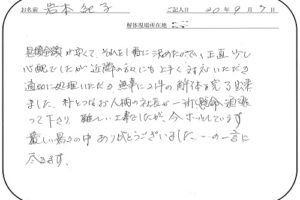 お名前 岩本 紀子 ご記入日 20年9月7日
解体現場所在地
見積金額が安くて、それを1番に決めたので、正直少し
心配でしたが近隣の方にも上手く対応いただき
適切に処理いただき無事に2件の解体を完了出来
ました。朴とつなお人柄の社長が一所懸命頑張
って下さり、難しい工事でしたが、今、ホッとしています
厳しい暑さの中ありがとうございました、の一言に
尽きます。